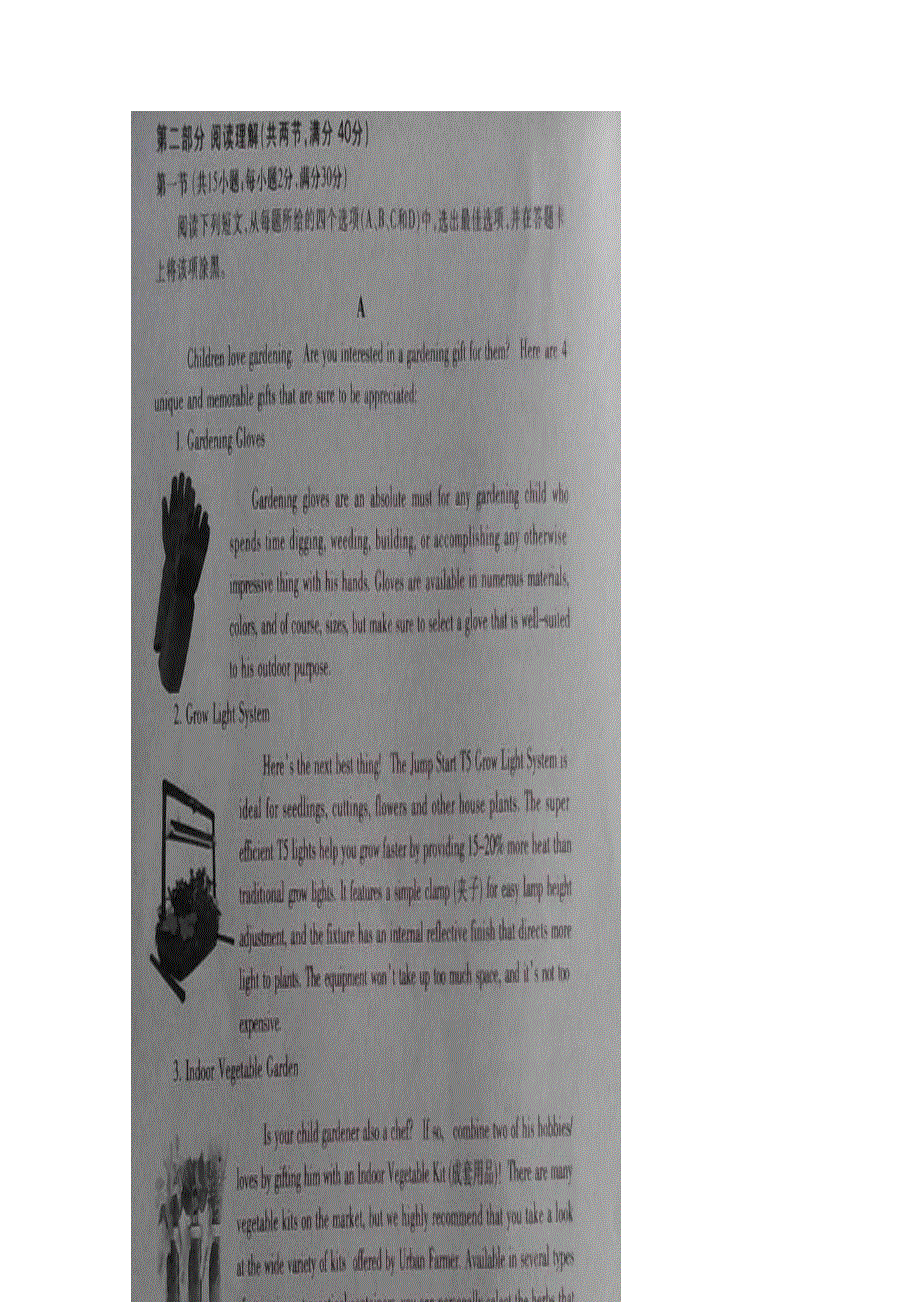 第二部分 阅读理解(共两节,满分 40分)
第一节 (共15小题;每小题2分,满分30分)
阅读下列短文,从每题所给的四个选项(A、B、C和D)中,选出最佳选项,并在答题卡
上将该项涂黑。
A
Children love gardening. Are you interested in a gardening gift for them? Here are 4
unique and memorable gifts that are sure to be appreciated:
1. Gardening Gloves
Gardening gloves are an absolute must for any gardening child who
spends time digging, weeding, building, or accomplishing any otherwise
impressive thing with his hands. Gloves are available in numerous materials,
colors, and of course, sizes, but make sure to select a glove that is well-suited
to his outdoor purpose.
2. Grow Light System
Here's the next best thing! The Jump Start T5 Grow Light System is
ideal for seedlings, cuttings, flowers and other house plants. The super
efficient T5 lights help you grow faster by providing 15-20% more heat than
traditional grow lights. It features a simple clamp (夹子) for easy lamp height
adjustment, and the fixture has an internal reflective finish that directs more
light to plants. The equipment won't take up too much space, and it's not too
expensive.
3. Indoor Vegetable Garden
Is your child gardener also a chef? If so, combine two of his hobbies/
loves by gifting him with an Indoor Vegetable Kit (成套用品)! There are many
vegetable kits on the market, but we highly recommend that you take a look
at the wide variety of kits offered by Urban Farmer. Available in several types
you can personally select the herbs that